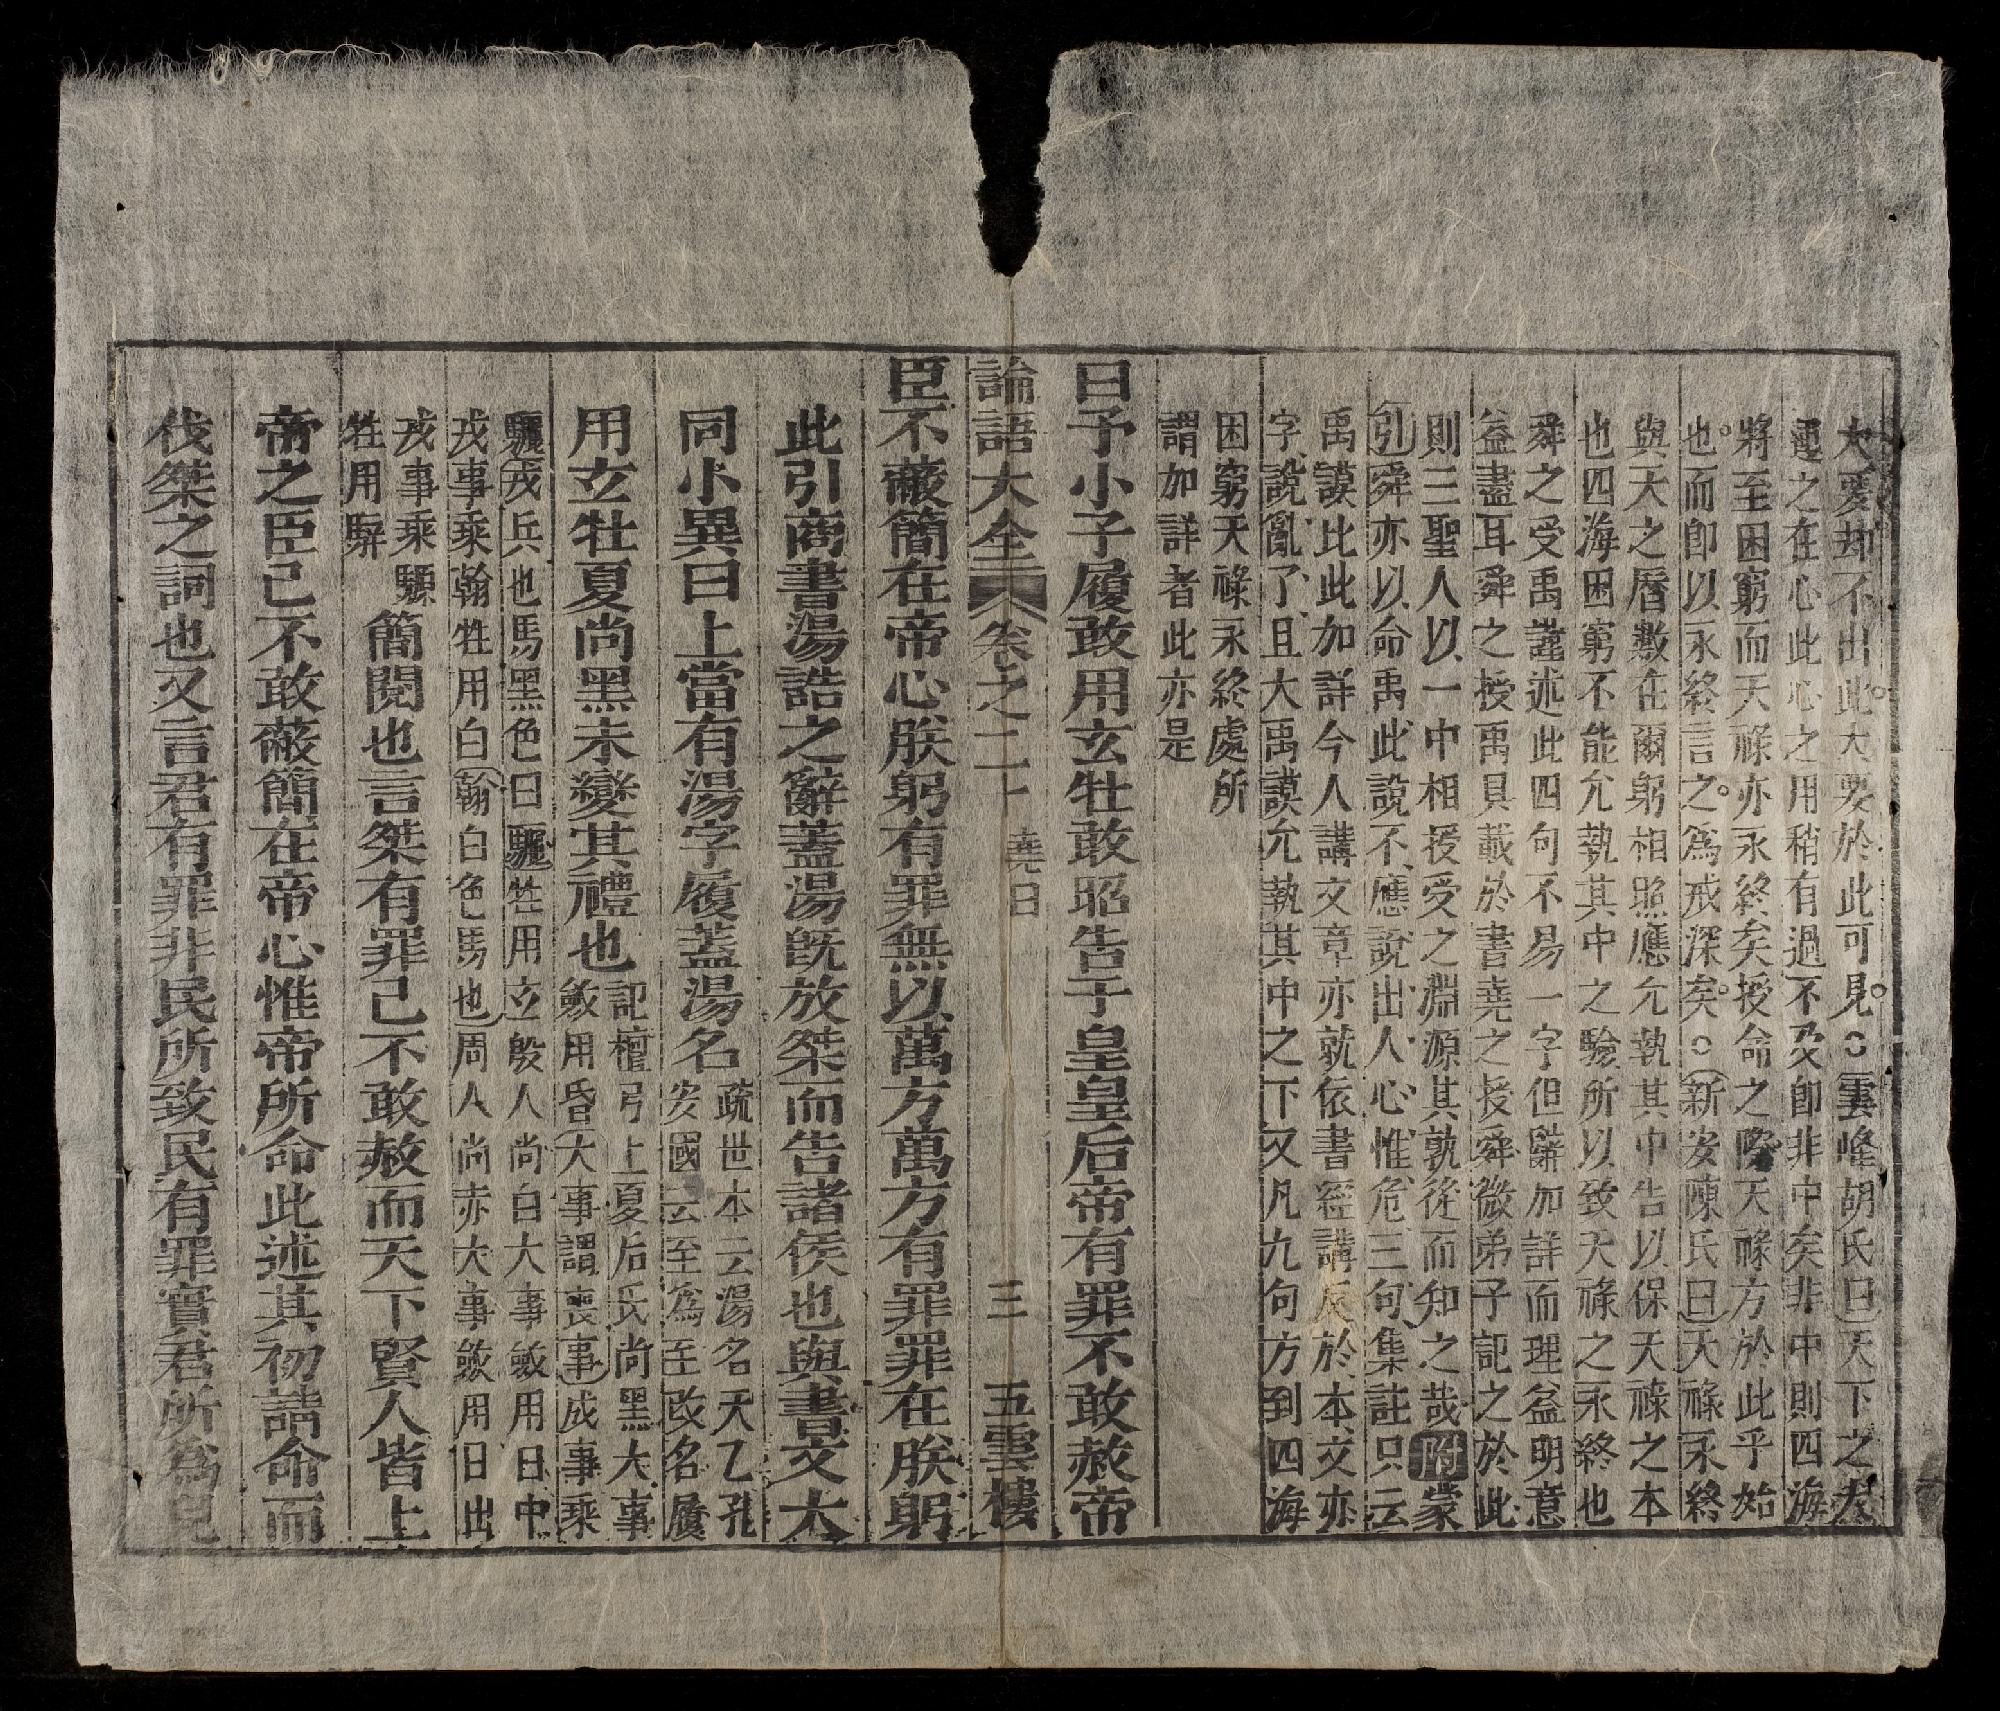 大爱却不出此大要於此可見○雲峰胡氏曰天下之大
運之在心此心之用稍有過不及即非中矣非中則四海
將至困窮而天祿亦永終矣授命之際天祿方於此乎始
也而即以永終言之為戒深矣○新安陳氏曰天祿永終
與天之曆數在爾躬相照應允執其中告以保天祿之本
也四海困窮不能允執其中之驗所以致天祿之永終也
舜之受禹謹述此四句不易一字但辭加詳而理益明意
益盡耳舜之授禹具載於書堯之授舜微弟子記之於此
則三聖人以一中相授受之淵源其孰從而知之哉附蒙
引舜亦以命禹此說不應說出人心惟危三句集註只云
禹謨比此加詳今人講文章亦就依書經講反於本文亦
字說亂了且大禹謨允執其中之下又凡九句方到四海
困窮天祿永終處所
謂加詳者此亦是
曰予小子履敢用玄牡敢昭告于皇皇后帝有罪不敢赦帝
論語大全 卷之二十 堯曰 三 五雲樓
臣不蔽簡在帝心朕躬有罪無以萬方萬方有罪罪在朕躬
此引商書湯誥之辭蓋湯既放桀而告諸侯也與書文大
同小異曰上當有湯字履蓋湯名疏世本云湯名天乙孔
安國云至為至改名履
用玄牡夏尚黑未變其禮也記檀弓上夏后氏尚黑大事
斂用昏大事謂喪事戎事乘
驪戎兵也馬黑色曰驪牲用玄殷人尚白大事斂用日中
戎事乘翰牲用白翰白色馬也周人尚赤大事斂用日出
戎事乘騵
牲用騂簡閱也言桀有罪己不敢赦而天下賢人皆上
帝之臣己不敢蔽簡在帝心惟帝所命此述其初請命而
伐桀之詞也又言君有罪非民所致民有罪實君所為見